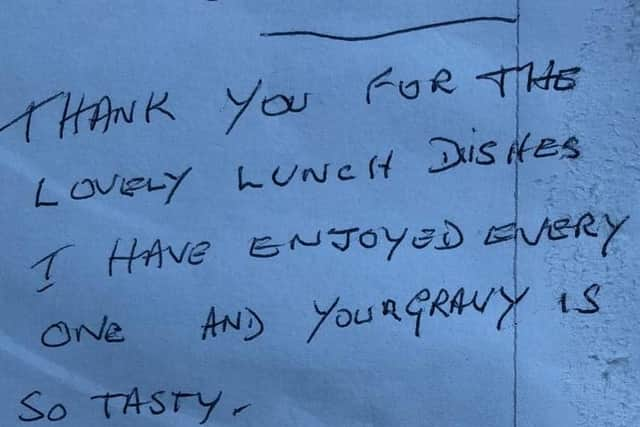 THANK YOU FOR THE
LOVELY LUNCH DISHES
I HAVE ENJOYED EVERY
ONE AND YOUR GRAVY IS
SO TASTY.